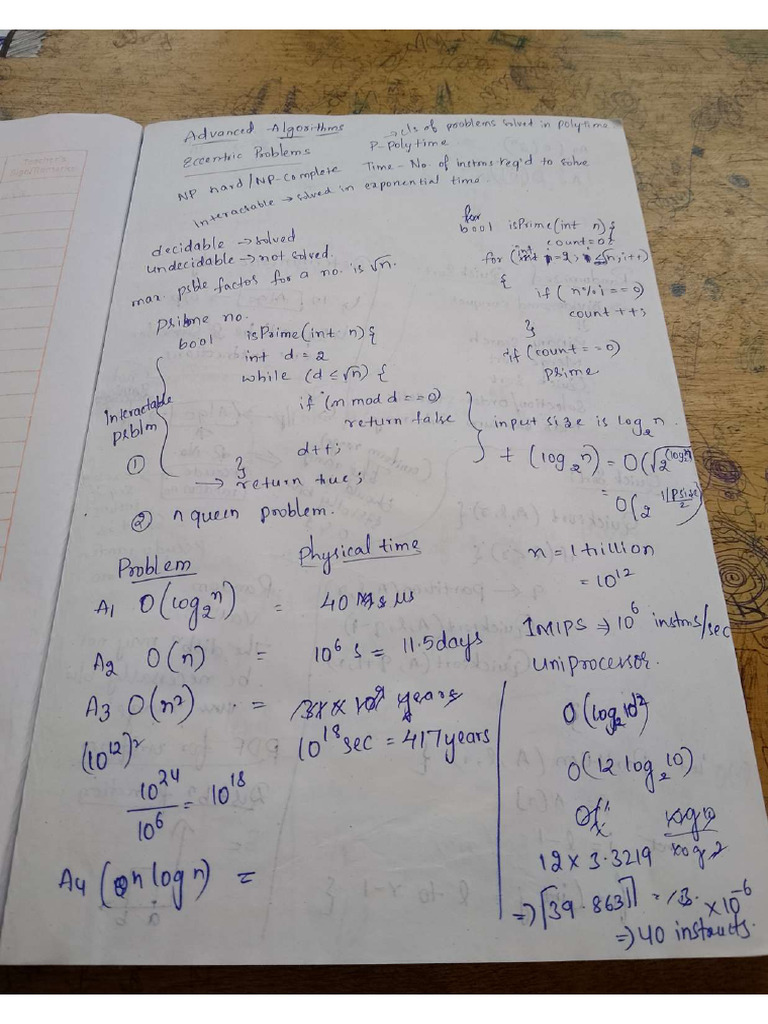 Advanced Algorithms
→ cls of problems solved in polytime
Eccentric Problems
P - Poly time
NP hard / NP-complete
Time - No. of instrns req'd to solve
Interactable → solved in exponential time.
decidable → solved
undecidable → not solved.
max. psble factos for a no. is √n.
Prime no.
bool isPrime(int n){
int d = 2
while (d ≤ √n) {
if (n mod d == 0)
return false
d++;
}
→ return true;
Interactable
prblm
①
② n queen problem.
for
bool isPrime(int n){
int count=0;
for (int i=2; i≤√n; i++)
{
if (n%i==0)
count++;
}
if (count==0)
prime
input size is log₂n.
t (log₂n) = O(√2^(log₂n))
= O(2^(i/p size/2))
Problem
Physical time
A1 O(log₂n) = 40 μs
A2 O(n) = 10⁶ s = 11.5 days
A3 O(n²) =
(10¹²)²
10¹⁸ sec = 417 years
10²⁴/10⁶ = 10¹⁸
A4 (n log n) =
n = 1 trillion
= 10¹²
1 MIPS → 10⁶ instrns/sec
Uniprocessor.
O(log₂10¹²)
O(12 log₂10)
12 × 3.3219
⇒ ⌈39.863⌉ = × 10⁻⁶
⇒ 40 instructs.